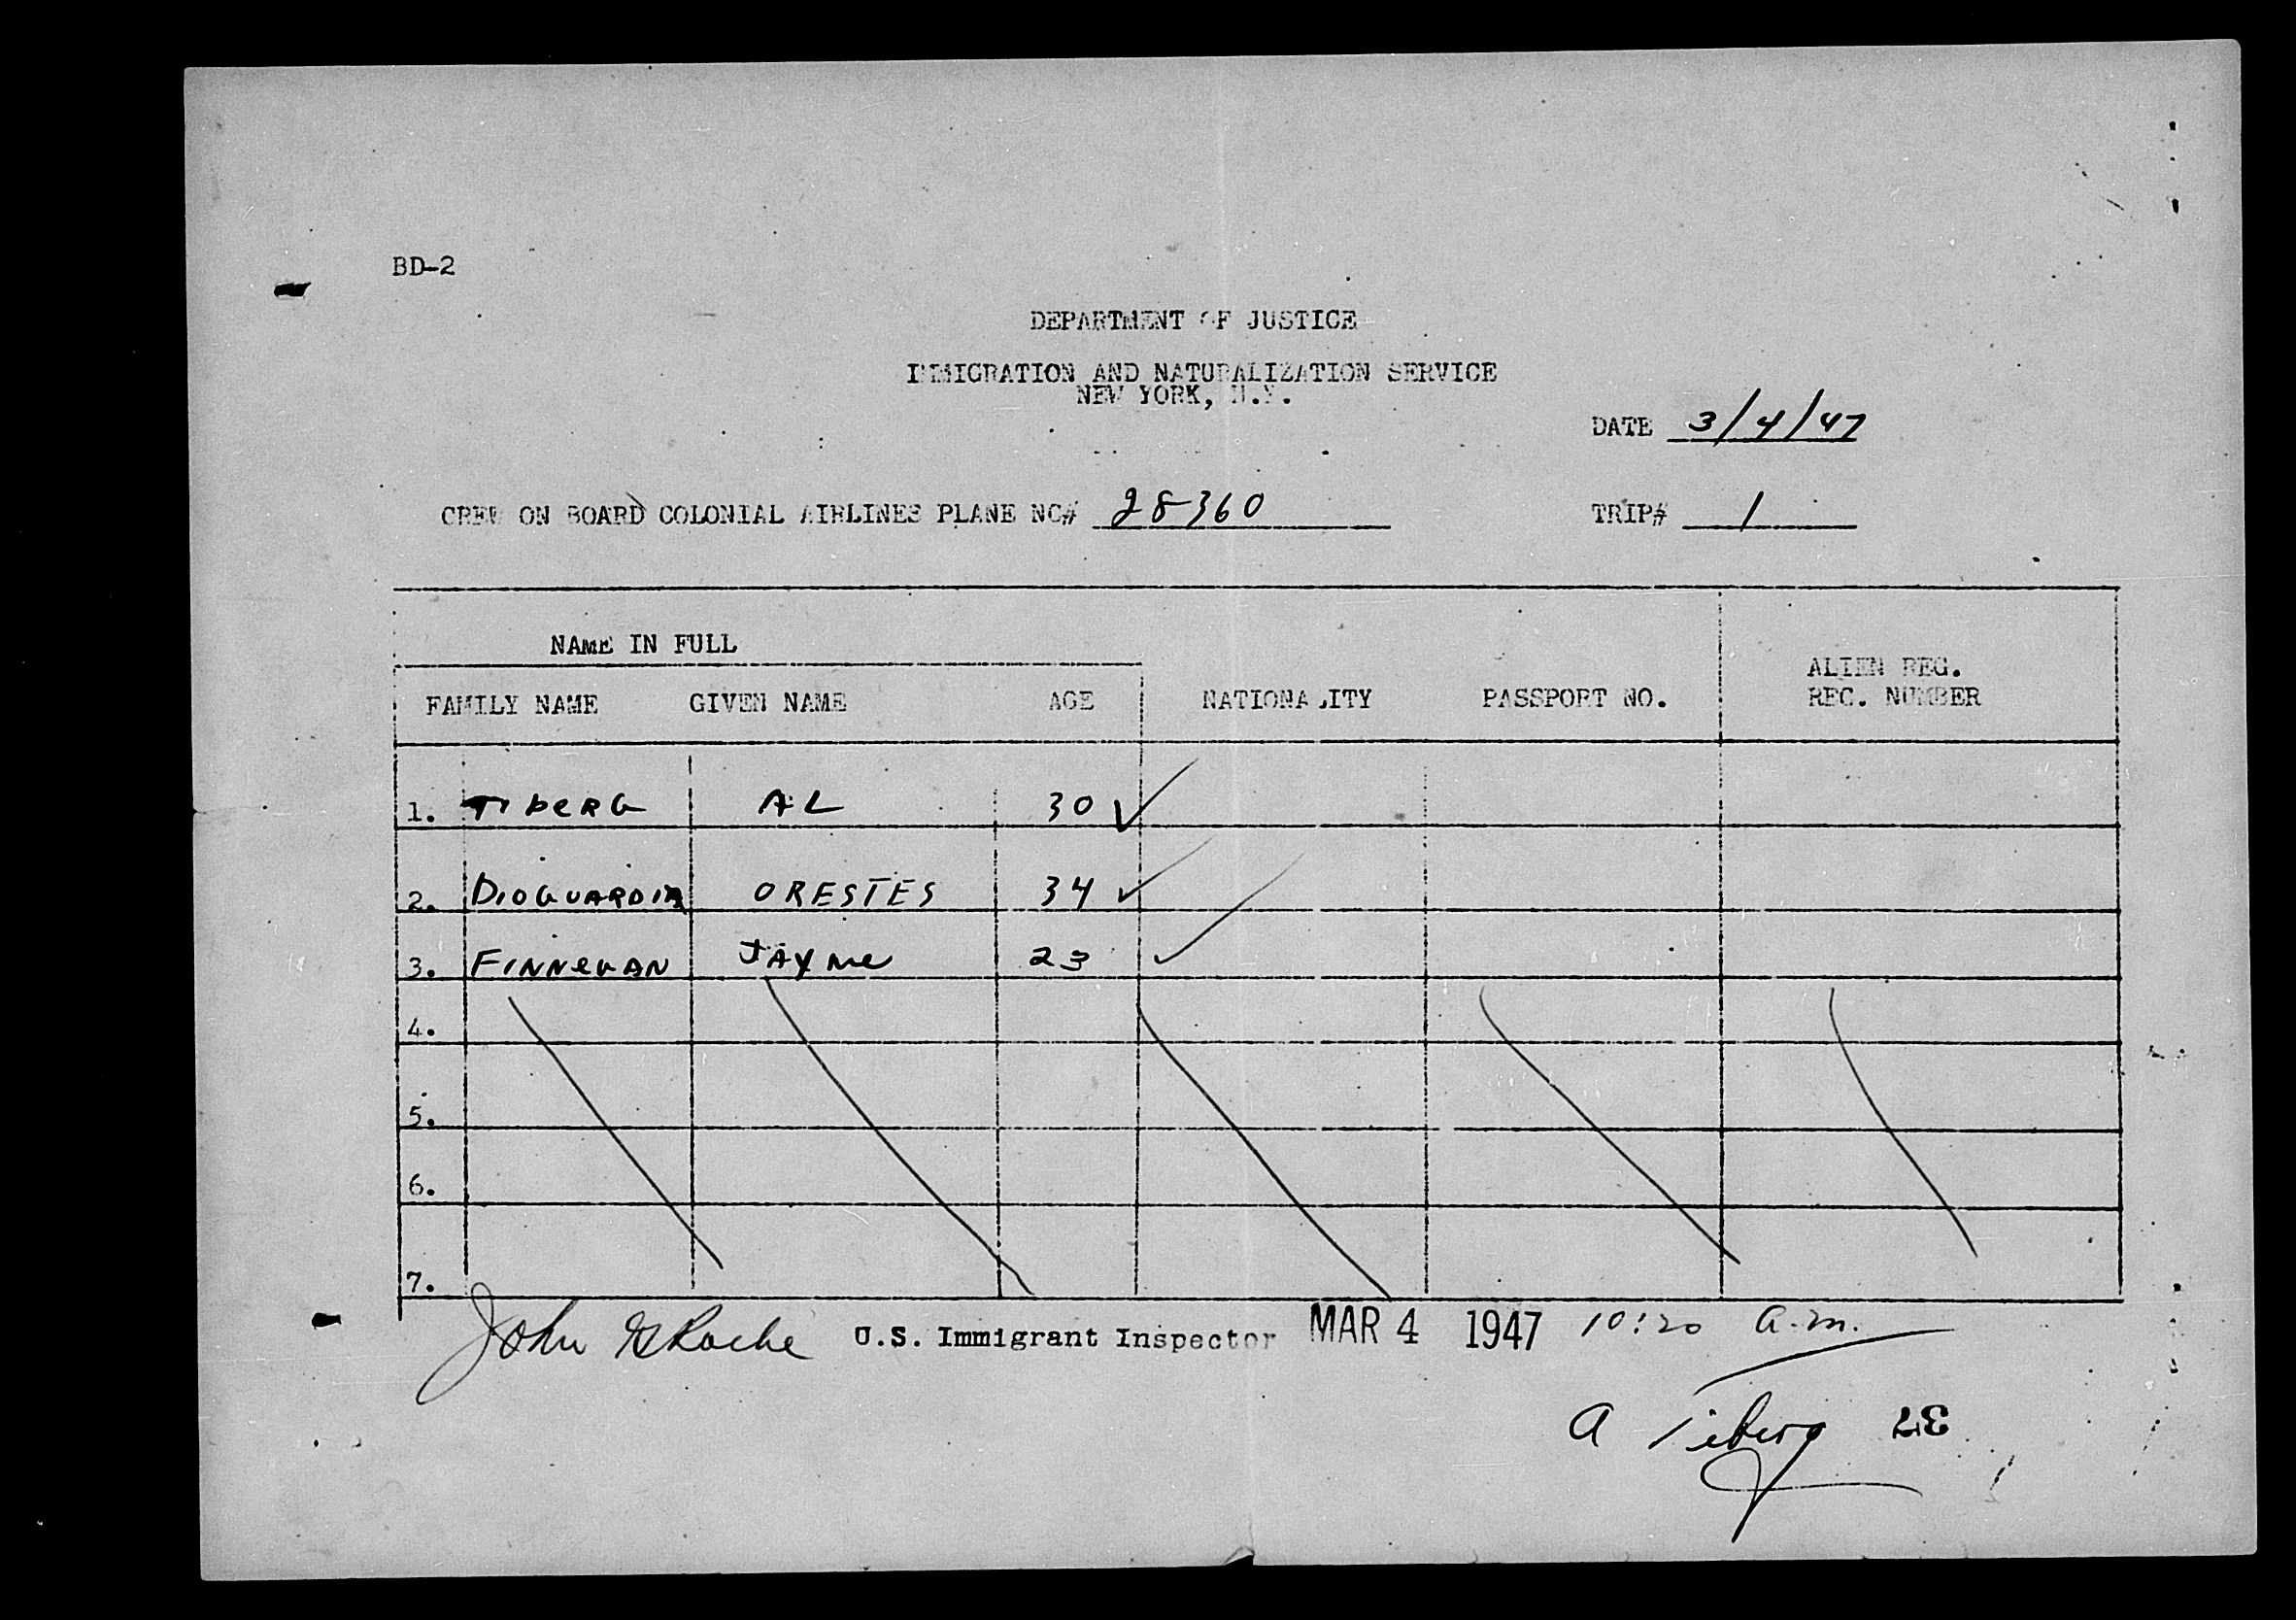 BD-2
DEPARTMENT OF JUSTICE
IMMIGRATION AND NATURALIZATION SERVICE
NEW YORK, N.Y.
DATE 3/4/47
CREW ON BOARD COLONIAL AIRLINES PLANE NC# 28360 TRIP# 1
NAME IN FULL
ALIEN REG.
FAMILY NAME GIVEN NAME AGE NATIONALITY PASSPORT NO. REC. NUMBER
1. TIBERG AL 30
2. DIOGUARDIA ORESTES 34
3. FINNEGAN JAYNE 23
4.
5.
6.
7.
John Roche U.S. Immigrant Inspector MAR 4 1947 10:20 a.m.
A Tiberg 37